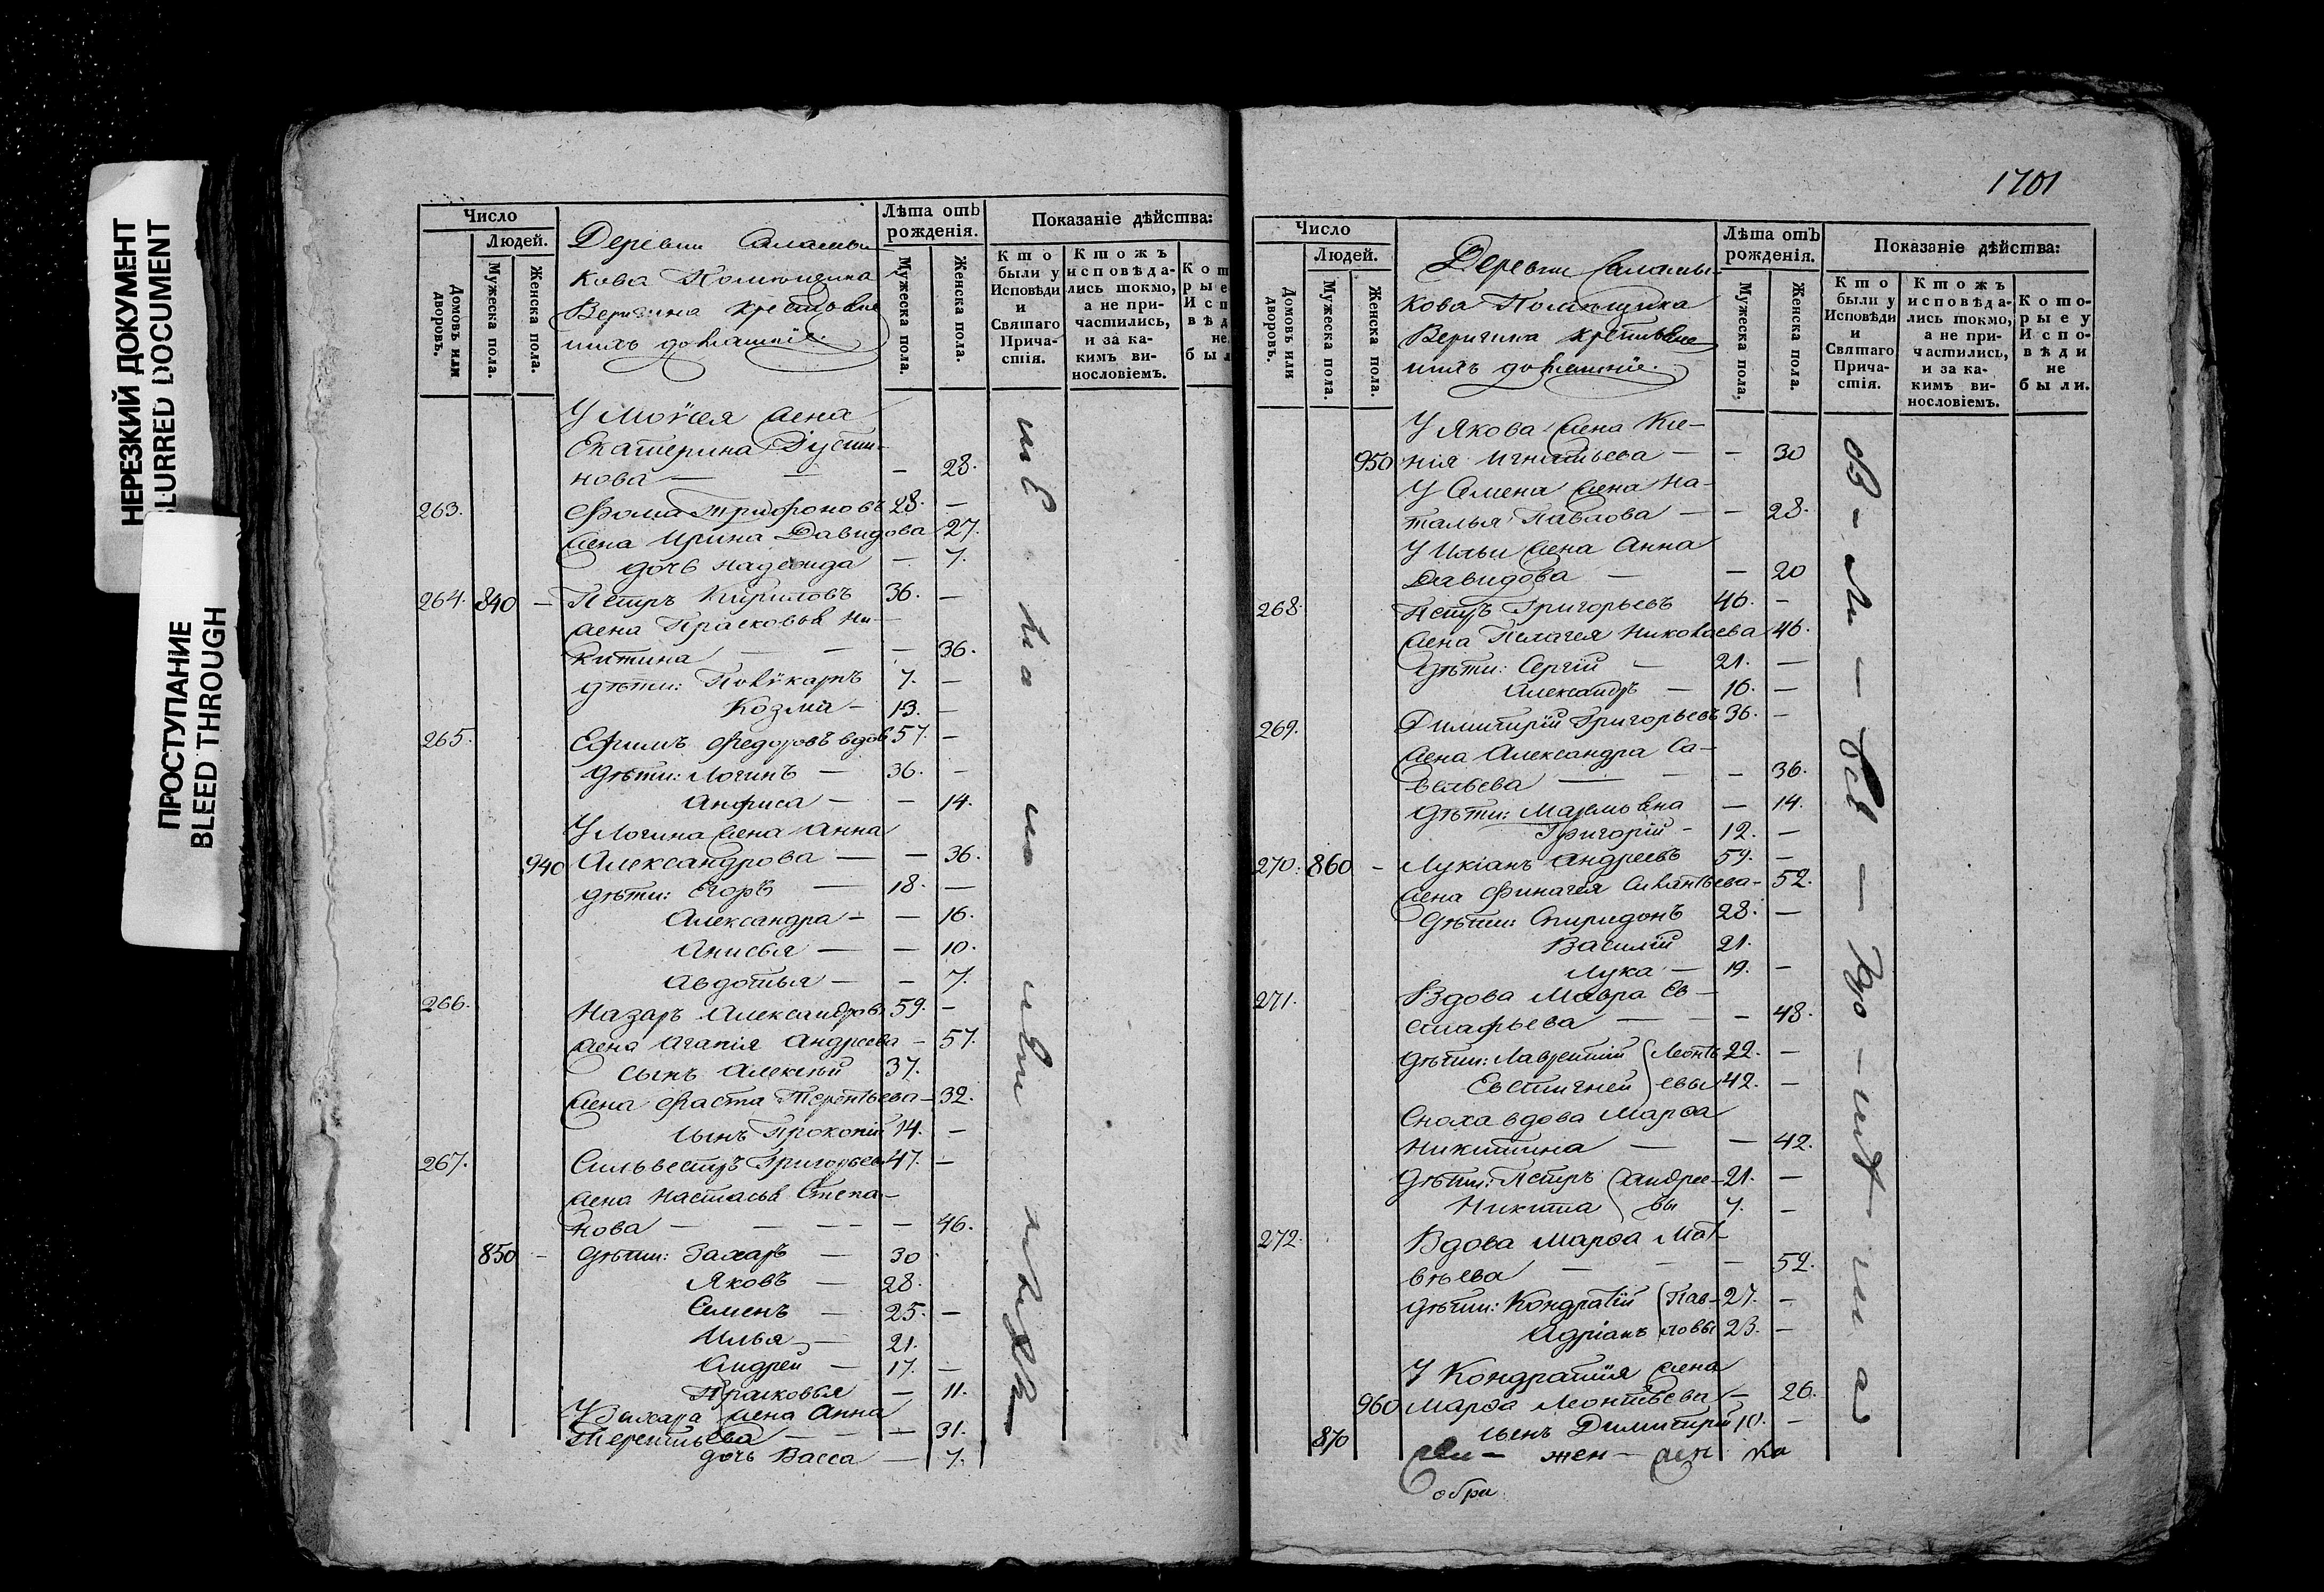 НЕРЕЗКИЙ ДОКУМЕНТ
BLURRED DOCUMENT
ПРОСТУПАНИЕ
BLEED THROUGH
Число
Людей.
Домовъ или дворовъ.
Мужеска пола.
Женска пола.
Деревни Саламы-
кова Помѣщика
Веригина крестьяне
ихъ домашніе.
Лѣта отъ рожденія.
Мужеска пола.
Женска пола.
Показаніе дѣйства:
Кто были у Исповѣди и Святаго Причастія.
Ктожъ исповѣдались токмо, а не причастились, и за какимъ винословіемъ.
У Моѵсея жена
Екатерина Іусти-
нова — — — 28.
263. Ѳома Трифоновъ 28. —
жена Ирина Давидова 27.
дочь Надежда — 7.
264. 840 — Петръ Кириловъ 36. —
жена Прасковья Ни-
китина — — — 36.
дѣти: Полѵкарпъ 7. —
Козма — 13. —
265. Ефимъ Федоровъ вдов 57. —
дѣти: Логинъ — 36. —
Анфиса — — 14.
У Логина жена Анна
940 Александрова — — 36.
дѣти: Егоръ — 18. —
Александра — — 16.
Анисья — — 10.
Авдотья — — 7.
266. Назаръ Александровъ 59. —
жена Агапія Андреева — 57.
сынъ Алексѣй 37.
жена Фаста Терентьева — 32.
сынъ Прокопій 14. —
267. Сильвестръ Григорьев 47. —
жена Настасья Степа-
нова — — — — — 46.
850 — дѣти: Захаръ — 30
Яковъ — 28.
Семенъ — 25. —
Илья — 21.
Андрей — 17. —
Прасковья — 11.
У Захара жена Анна
Терентьева — — — 31.
дочь Васса — 7.
1701
Число
Людей.
Домовъ или дворовъ.
Мужеска пола.
Женска пола.
Деревни Саламы-
кова Помѣщика
Веригина крестьяне
ихъ домашніе.
Лѣта отъ рожденія.
Мужеска пола.
Женска пола.
Показаніе дѣйства:
Кто были у Исповѣди и Святаго Причастія.
Ктожъ исповѣдались токмо, а не причастились, и за какимъ винословіемъ.
Которые у Исповѣди не были.
У Якова жена Ксе-
950 нія Игнатьева — — 30
У Семена жена На-
талья Павлова — — 28.
У Ильи жена Анна
Давидова — — 20
268. Петръ Григорьевъ 46. —
жена Пелагея Николаева 46.
дѣти: Сергій — 21. —
Александръ — 16. —
269. Димитрій Григорьевъ 36. —
жена Александра Са-
вельева — — — 36.
дѣти: — 14.
Григорій — 12. —
270. 860 — Лукіанъ Андреевъ 59. —
жена — 52.
дѣти: Спиридонъ 28. —
Василій 21.
Лука — 19. —
271. Вдова Мавра Ев-
стафьева — — — 48.
дѣти: Лаврентій Леонть 22. —
Евстигней евы 42. —
Сноха вдова Марѳа
Никитина — — 42.
дѣти: Петръ Андрее- 21. —
Никита вы 7. —
272. Вдова Марѳа Мат-
вѣева — — — 52.
дѣти: Кондратій Пав- 27. —
Адріанъ ловы 23. —
У Кондратія жена
960 Марѳа Леонтьева — 26.
870 сынъ Димитрій 10. —